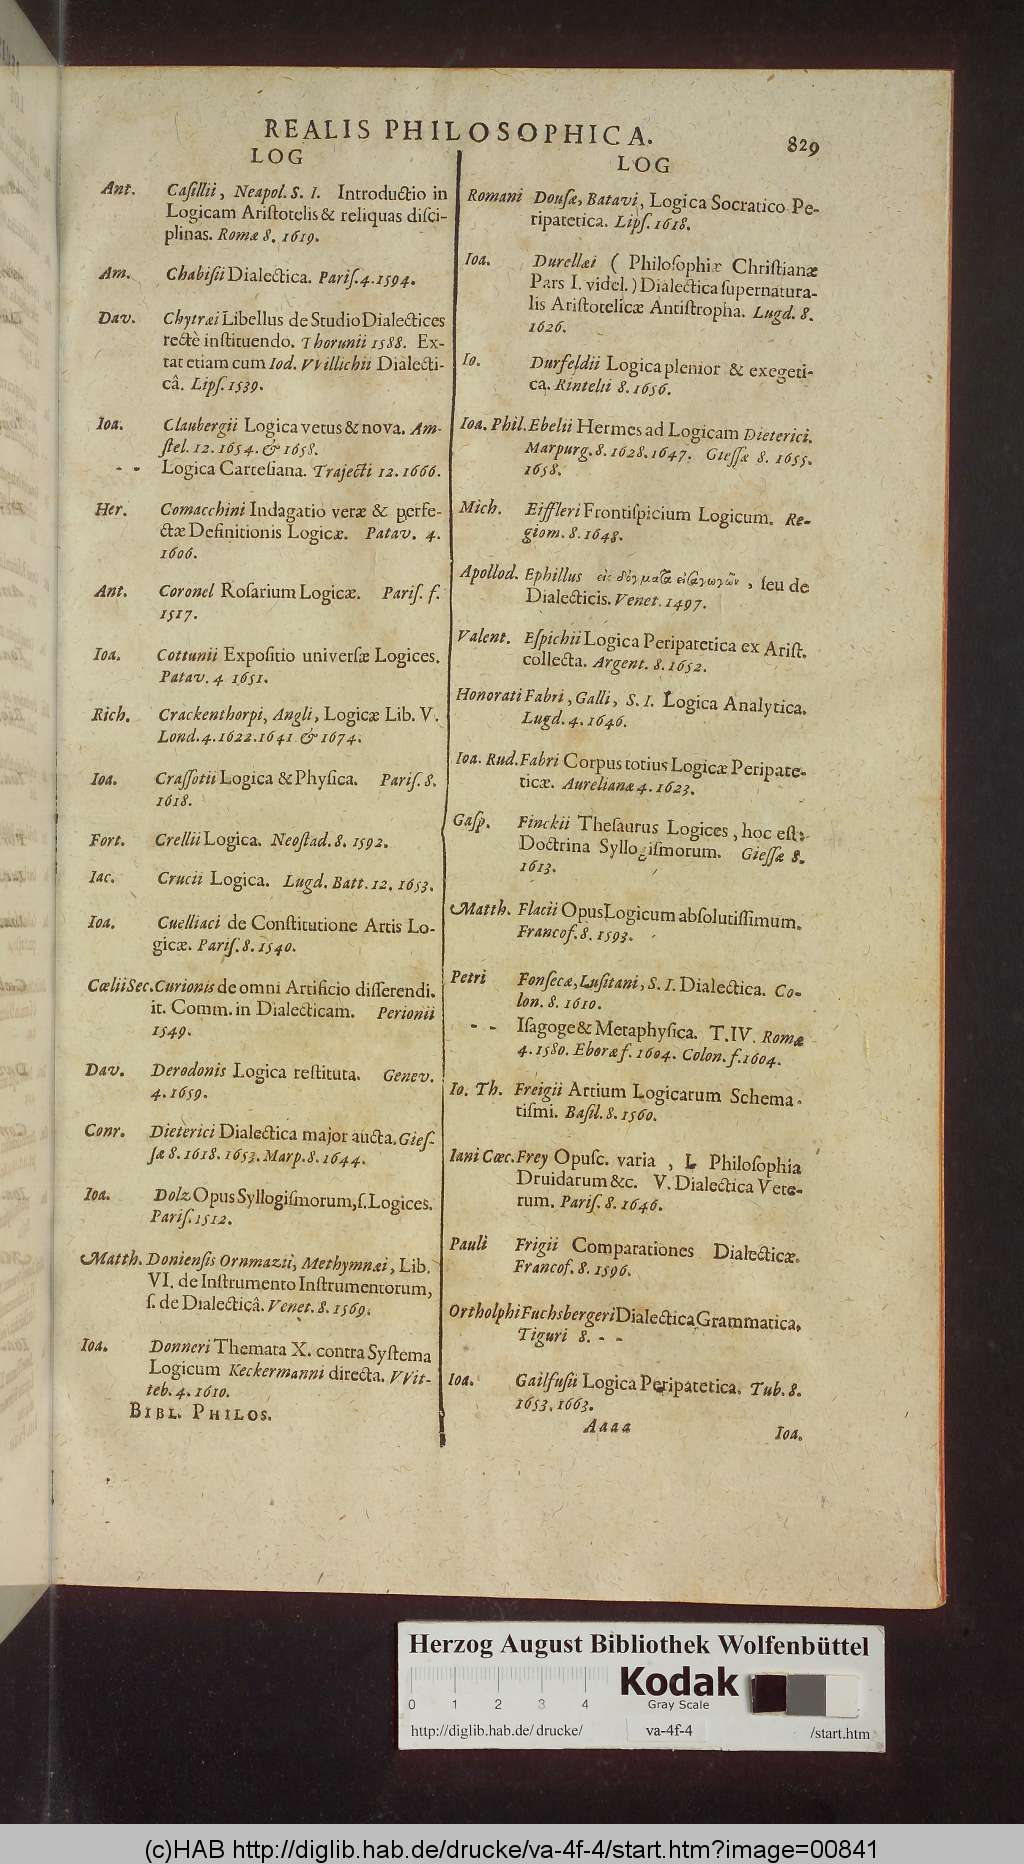 REALIS PHILOSOPHICA.
829
LOG
Ant. Casillii, Neapol. S. I. Introductio in
Logicam Aristotelis & reliquas disci-
plinas. Romæ 8. 1619.
Am. Chabisii Dialectica. Paris. 4. 1594.
Dav. Chytræi Libellus de Studio Dialectices
rectè instituendo. Thorunii 1588. Ex-
tat etiam cum Iod. VVillichii Dialecti-
câ. Lips. 1539.
Ioa. Claubergii Logica vetus & nova. Am-
stel. 12. 1654. & 1658.
- - Logica Cartesiana. Trajecti 12. 1666.
Her. Comacchini Indagatio veræ & perfe-
ctæ Definitionis Logicæ. Patav. 4.
1606.
Ant. Coronel Rosarium Logicæ. Paris. f.
1517.
Ioa. Cottunii Expositio universæ Logices.
Patav. 4 1651.
Rich. Crackenthorpi, Angli, Logicæ Lib. V.
Lond. 4. 1622. 1641 & 1674.
Ioa. Crassotii Logica & Physica. Paris. 8.
1618.
Fort. Crellii Logica. Neostad. 8. 1592.
Iac. Crucii Logica. Lugd. Batt. 12. 1653.
Ioa. Cuelliaci de Constitutione Artis Lo-
gicæ. Paris. 8. 1540.
Cælii Sec. Curionis de omni Artificio disserendi.
it. Comm. in Dialecticam. Perionii
1549.
Dav. Derodonis Logica restituta. Genev.
4. 1659.
Conr. Dieterici Dialectica major aucta. Gies-
sæ 8. 1618. 1653. Marp. 8. 1644.
Ioa. Dolz Opus Syllogismorum, s. Logices.
Paris. 1512.
Matth. Doniensis Ornmazii, Methymnæi, Lib.
VI. de Instrumento Instrumentorum,
s. de Dialecticâ. Venet. 8. 1569.
Ioa. Donneri Themata X. contra Systema
Logicum Keckermanni directa. VVit-
teb. 4. 1610.
BIBL. PHILOS.
LOG
Romani Dousæ, Batavi, Logica Socratico Pe-
ripatetica. Lips. 1618.
Ioa. Durellæi ( Philosophiæ Christianæ
Pars I. videl. ) Dialectica supernatura-
lis Aristotelicæ Antistropha. Lugd. 8.
1626.
Io. Durfeldii Logica plenior & exegeti-
ca. Rintelii 8. 1656.
Ioa. Phil. Ebelii Hermes ad Logicam Dieterici.
Marpurg. 8. 1628. 1647. Giessæ 8. 1655.
1658.
Mich. Eiffleri Frontispicium Logicum. Re-
giom. 8. 1648.
Apollod. Ephillus εἰς δόγματα εἰσαγωγῶν, seu de
Dialecticis. Venet. 1497.
Valent. Espichii Logica Peripatetica ex Arist.
collecta. Argent. 8. 1652.
Honorati Fabri, Galli, S. I. Logica Analytica.
Lugd. 4. 1646.
Ioa. Rud. Fabri Corpus totius Logicæ Peripate-
ticæ. Aurelianæ 4. 1623.
Gasp. Finckii Thesaurus Logices, hoc est:
Doctrina Syllogismorum. Giessæ 8.
1613.
Matth. Flacii Opus Logicum absolutissimum.
Francof. 8. 1593.
Petri Fonsecæ, Lusitani, S. I. Dialectica. Co-
lon. 8. 1610.
- - Isagoge & Metaphysica. T. IV. Romæ
4. 1580. Eboræ f. 1604. Colon. f. 1604.
Io. Th. Freigii Artium Logicarum Schema-
tismi. Basil. 8. 1560.
Iani Cæc. Frey Opusc. varia, I. Philosophia
Druidarum &c. V. Dialectica Vete-
rum. Paris. 8. 1646.
Pauli Frigii Comparationes Dialecticæ.
Francof. 8. 1596.
Ortholphi Fuchsbergeri Dialectica Grammatica.
Tiguri 8. - -
Ioa. Gailfusii Logica Peripatetica. Tub. 8.
1653. 1663.
Aaaa
Ioa.
Herzog August Bibliothek Wolfenbüttel
0 1 2 3 4
Kodak
Gray Scale
http://diglib.hab.de/ drucke/ va-4f-4 /start.htm
(c)HAB http://diglib.hab.de/drucke/va-4f-4/start.htm?image=00841